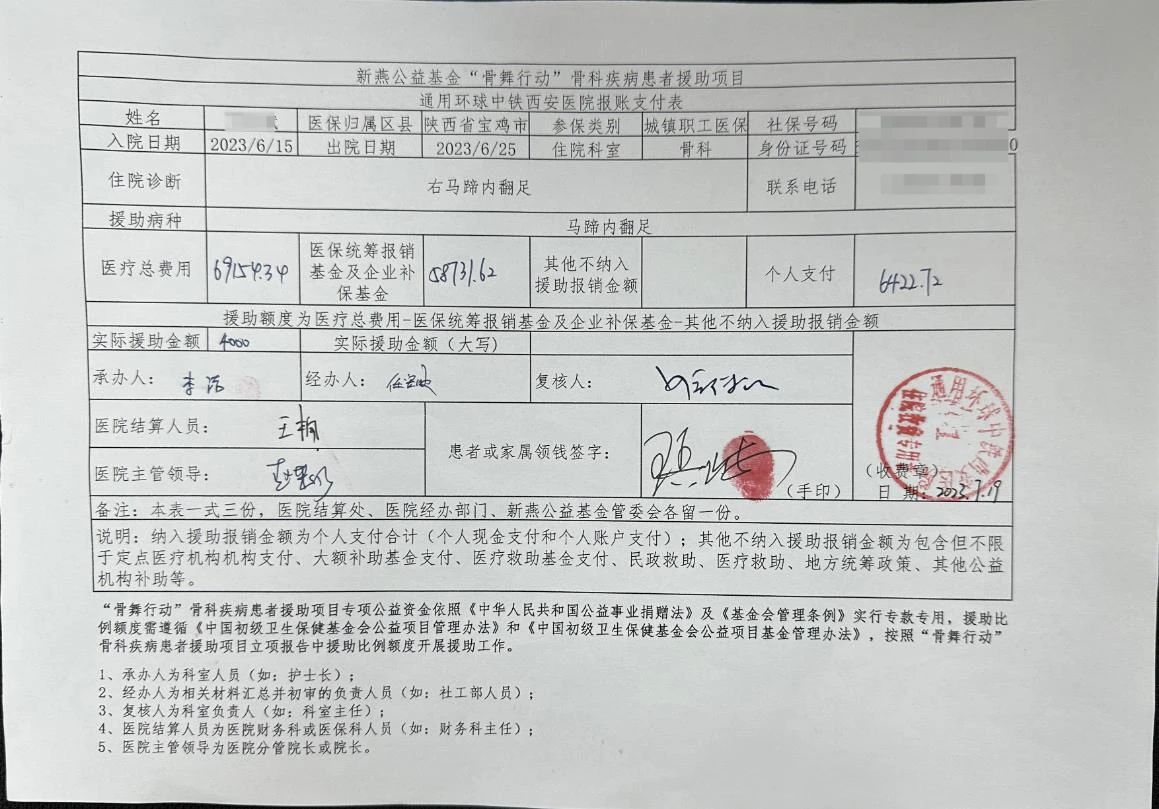 新燕公益基金“骨舞行动”骨科疾病患者援助项目
通用环球中铁西安医院报账支付表
姓名 医保归属区县 陕西省宝鸡市 参保类别 城镇职工医保 社保号码
入院日期 2023/6/15 出院日期 2023/6/25 住院科室 骨科 身份证号码
住院诊断 右马蹄内翻足 联系电话
援助病种 马蹄内翻足
医疗总费用 69154.34 医保统筹报销基金及企业补保基金 58731.62 其他不纳入援助报销金额 个人支付 6422.72
援助额度为医疗总费用-医保统筹报销基金及企业补保基金-其他不纳入援助报销金额
实际援助金额 4000 实际援助金额（大写）
承办人： 经办人： 复核人：
医院结算人员：
患者或家属领钱签字：
医院主管领导：
（手印）
（收费章）
日 期：2023.7.19
备注：本表一式三份，医院结算处、医院经办部门、新燕公益基金管委会各留一份。
说明：纳入援助报销金额为个人支付合计（个人现金支付和个人账户支付）；其他不纳入援助报销金额为包含但不限
于定点医疗机构机构支付、大额补助基金支付、医疗救助基金支付、民政救助、医疗救助、地方统筹政策、其他公益
机构补助等。
“骨舞行动”骨科疾病患者援助项目专项公益资金依照《中华人民共和国公益事业捐赠法》及《基金会管理条例》实行专款专用，援助比
例额度需遵循《中国初级卫生保健基金会公益项目管理办法》和《中国初级卫生保健基金会公益项目基金管理办法》，按照“骨舞行动”
骨科疾病患者援助项目立项报告中援助比例额度开展援助工作。
1、承办人为科室人员（如：护士长）；
2、经办人为相关材料汇总并初审的负责人员（如：社工部人员）；
3、复核人为科室负责人（如：科室主任）；
4、医院结算人员为医院财务科或医保科人员（如：财务科主任）；
5、医院主管领导为医院分管院长或院长。